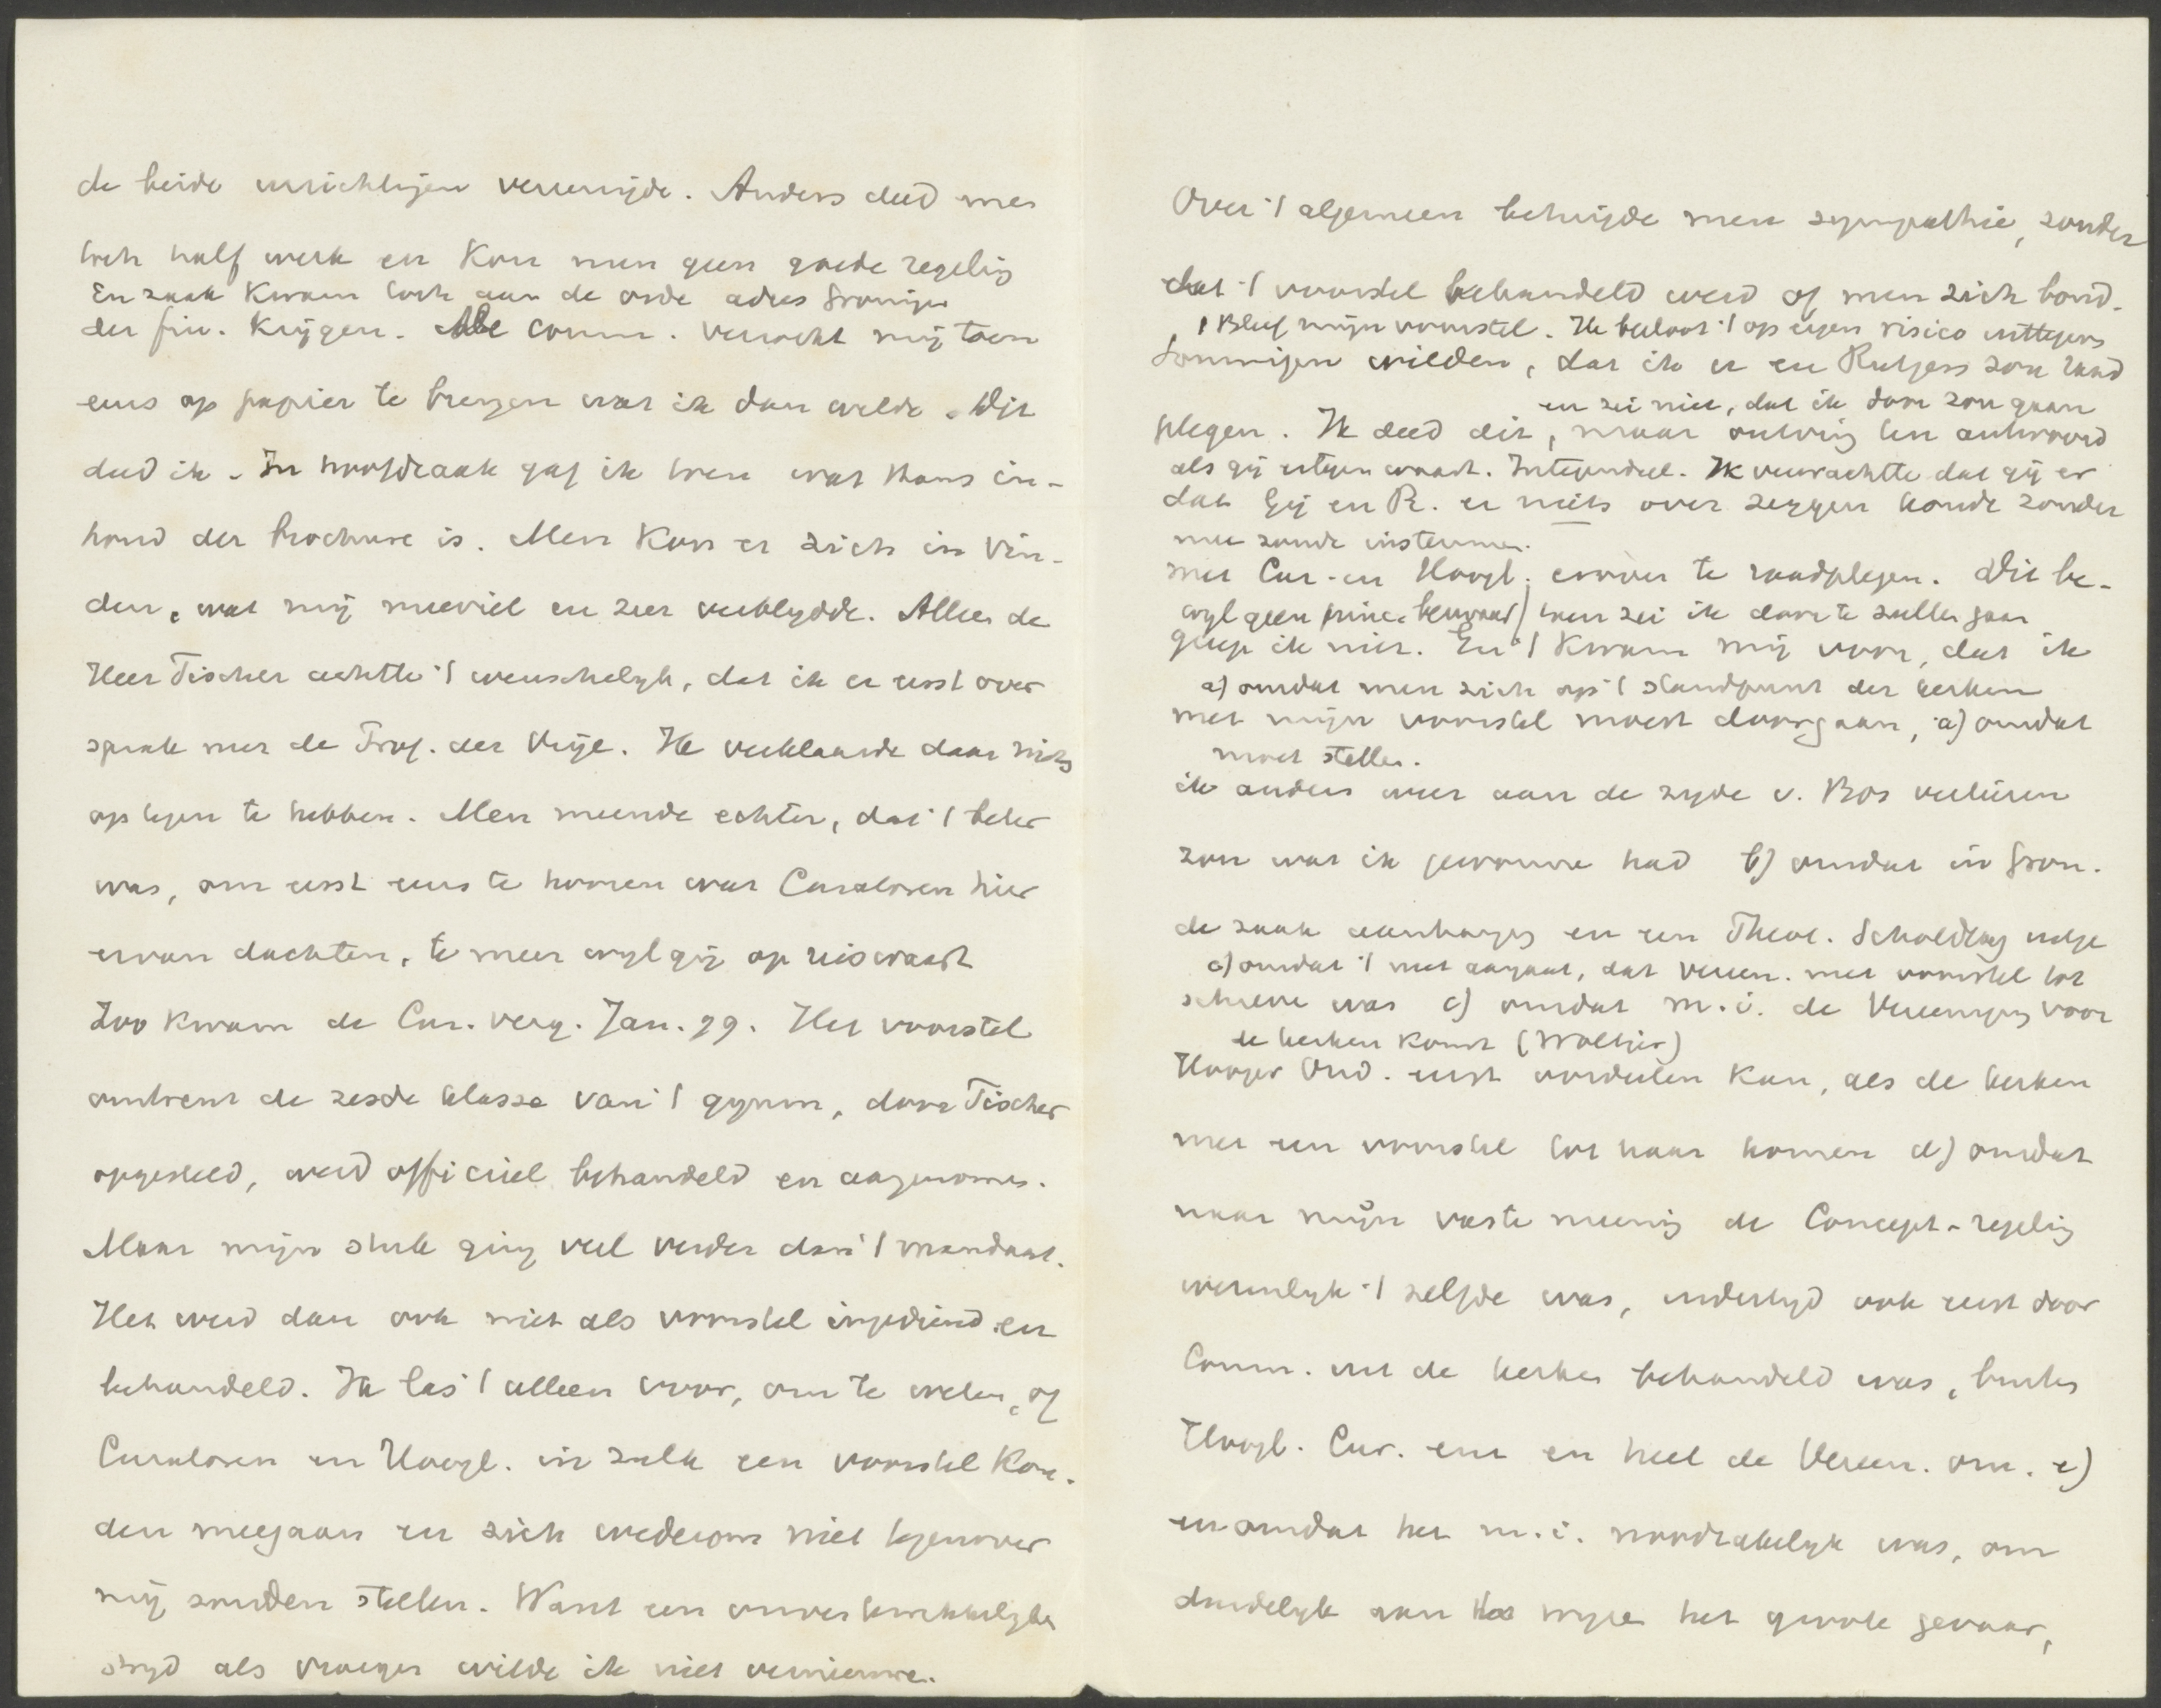 de beide inrichtingen vereenigde. Anders deed men
toch half werk en kon men geen goede regeling
En zaak kwam toch aan de orde adres Groningen
der fin. krijgen. De comm. verzocht mij toen
eens op papier te brengen wat ik dan wilde. Dit
deed ik. In hoofdzaak gaf ik toen wat thans in-
houd der brochure is. Men kon er zich in vin-
den, wat mij meeviel en zeer verblijdde. Alleen de
Heer Tischer achtte 't wenschelijk, dat ik er eerst over
sprak met de Prof. der Vrije. Ik verklaarde daar niets
op tegen te hebben. Men meende echter, dat 't beter
was, om eerst eens te hooren wat Curatoren hier
ervan dachten, te meer wijl gij op reis waart
Zoo kwam de Cur. verg. Jan. 99. Het voorstel
omtrent de zesde klasse van 't gymn, door Tischer
opgesteld, werd officieel behandeld en aangenomen.
Maar mijn stuk ging veel verder dan 't mandaat.
Het werd dan ook niet als voorstel ingediend en
behandeld. Ik las 't alleen voor, om te weten, of
Curatoren en Hoogl. in zulk een voorstel kon-
den meegaan en zich wederom niet tegenover
mij zouden stellen. Want een onverkwikkelijke
strijd als vroeger wilde ik niet vernieuwen.
Over 't algemeen betuigde men sympathie, zonder
dat 't voorstel behandeld werd of men zich bond.
't Bleef mijn voorstel. Ik besloot 't op eigen risico uittegeven
Sommigen wilden, dat ik er en Rutgers zou raad
en zei niet, dat ik door zou gaan
plegen. Ik deed dit, maar ontving ten antwoord
als gij ertegen waart. Integendeel. Ik verwachtte dat gij er
dat Gij en R. er niets over zeggen konde zonder
mee zoudt instemmen.
met Cur. en Hoogl. erover te raadplegen. Dit be-
wijl geen princ. bezwaar) toen zei ik door te zullen gaan
greep ik niet. En 't kwam mij voor, dat ik
a) omdat men zich op 't standpunt der kerken
met mijn voorstel moest doorgaan, a) omdat
moet stellen.
ik anders weer aan de zijde v. Bos verliezen
zou wat ik gewonnen had b) omdat in Gron.
de zaak aanhangig en een Theol. Schooldag uitge
c) omdat 't niet aangaat, dat Vereen. met voorstel tot
schreven was c) omdat m.i. de Vereeniging voor
de kerken komt (Woltjer)
Hooger Ond. eerst oordeelen kan, als de kerken
met een voorstel tot haar komen d) omdat
naar mijn vaste meening de Concept-regeling
wezenlijk 't zelfde was, indertijd ook eerst door
Comm. uit de kerken behandeld was, buiten
Hoogl. Cur. enz en heel de Vereen. om. e)
en omdat het m.i. noodzakelijk was, om
duidelijk aan te wijzen het groote gevaar,